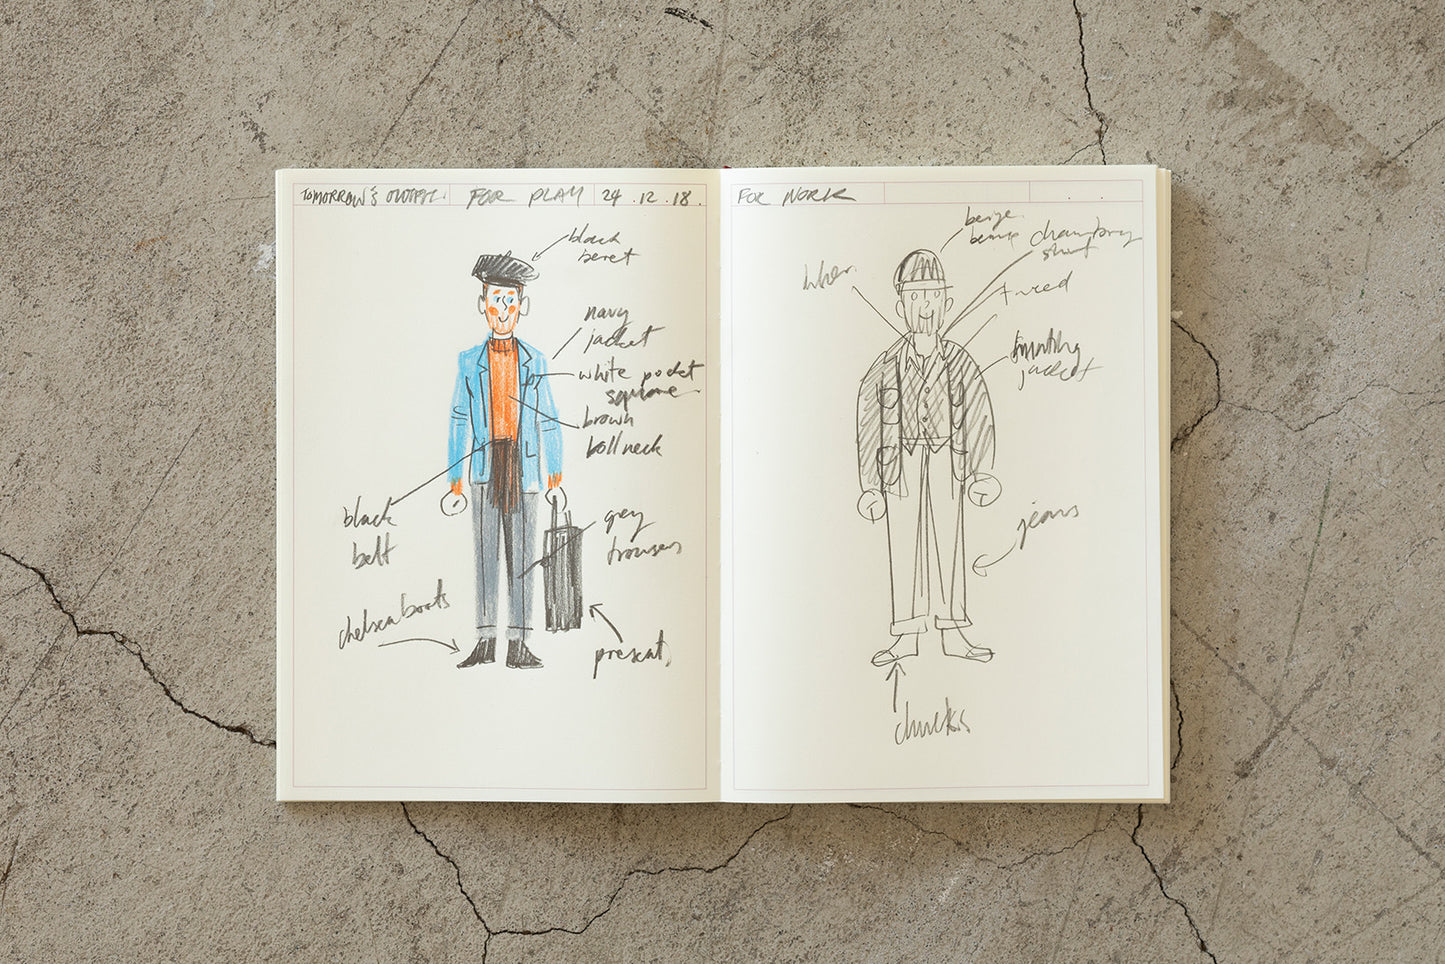 TOMORROW'S OUTFIT. FOR PLAY 24.12.18.
black
beret
navy
jacket
white pocket
square
brown
roll neck
black
belt
grey
trousers
chelsea boots
present
FOR WORK
beige
chambray
shirt
tweed
jacket
jeans
chucks